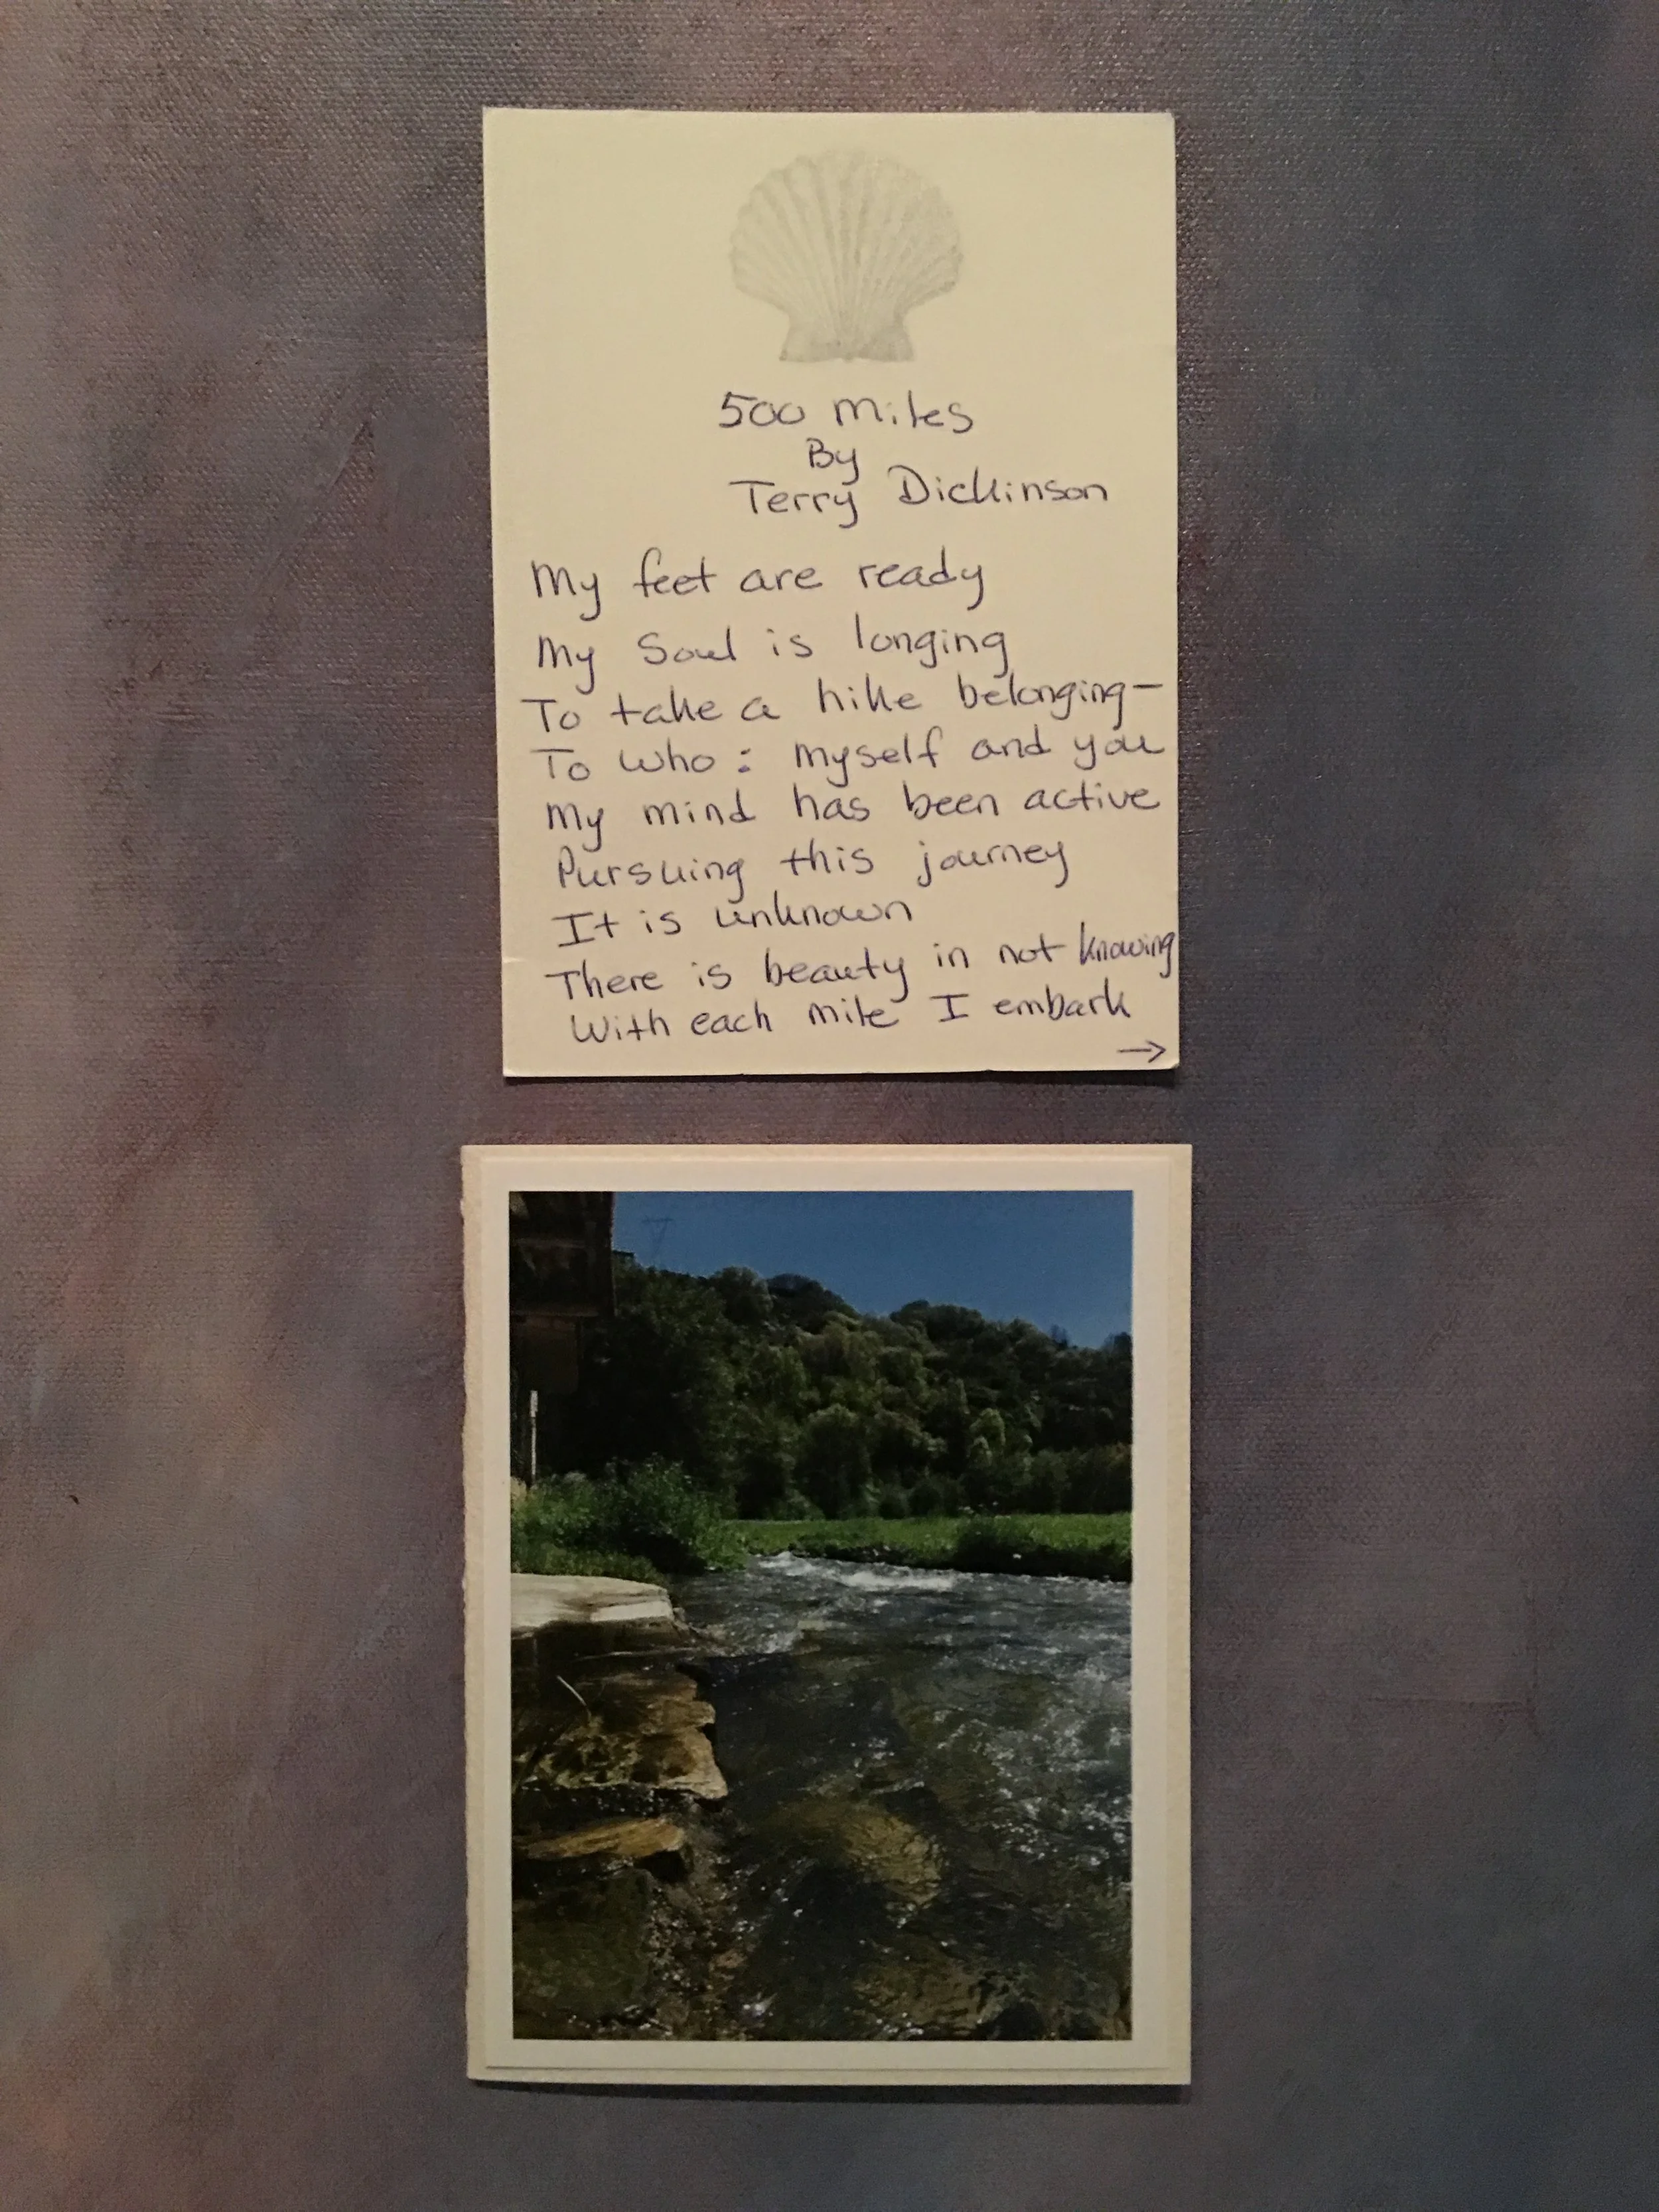 500 miles
By
Terry Dickinson
My feet are ready
My Soul is longing
To take a hike belonging—
To who: myself and you
My mind has been active
Pursuing this journey
It is unknown
There is beauty in not knowing
With each mile I embark
→